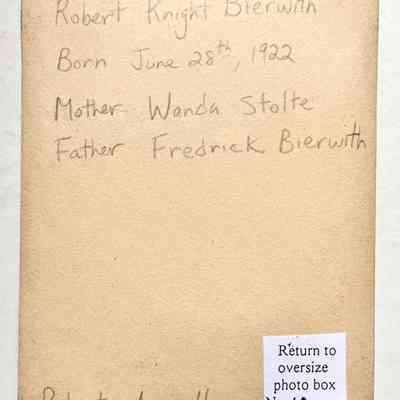 Robert Knight Bierwith
Born June 28th, 1922
Mother Wanda Stolte
Father Fredrick Bierwith
Return to
oversize
photo box